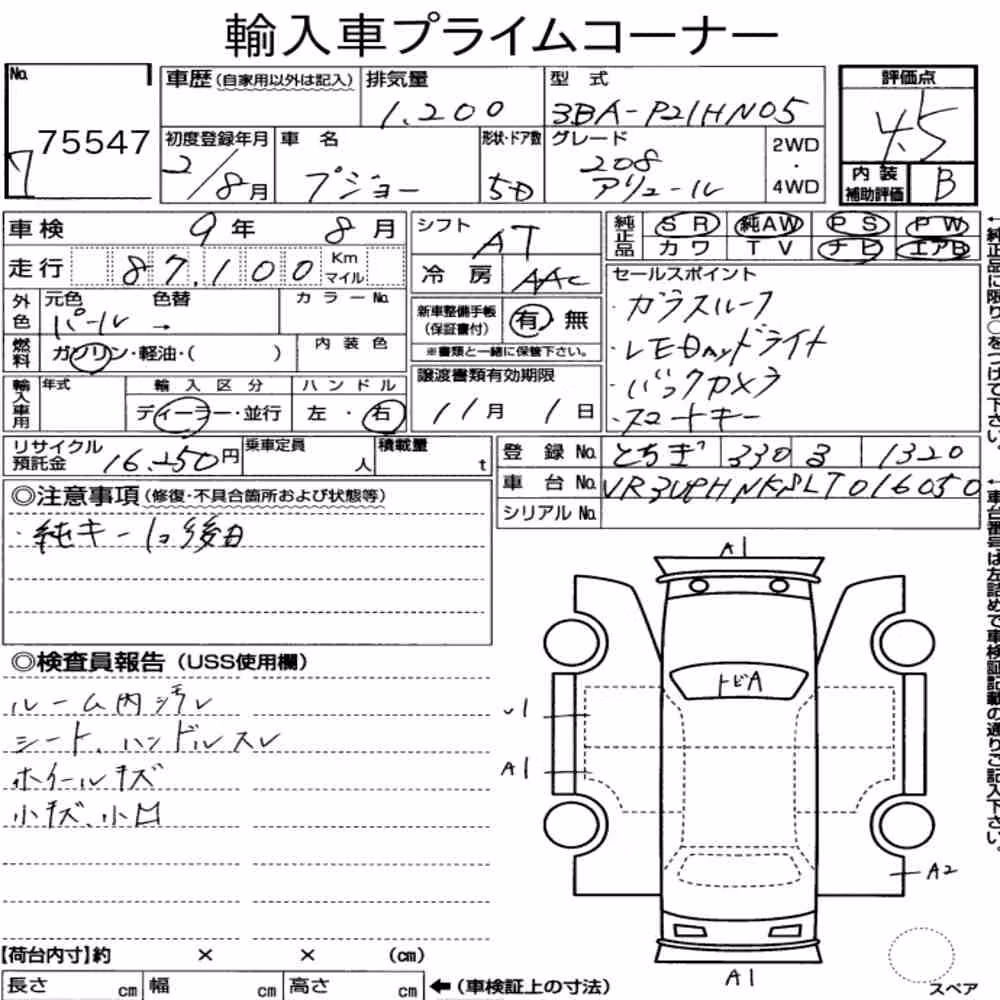 輸入車プライムコーナー
No. 75547
7
車歴 (自家用以外は記入)
排気量 1,200
型式 3BA-P21HN05
評価点 4.5
初度登録年月 2/8月
車名 プジョー
形状・ドア数 5D
グレード 208 アリュール
2WD・4WD
内装補助評価 B
車検 9年 8月
シフト AT
純正品 SR 純AW PS PW
カワ TV ナビ エアB
走行 87,100 Km マイル
冷房 AAC
セールスポイント
・ガラスルーフ
・LEDayドライト
・バックカメラ
・スマートキー
外色 元色 パール → 色替 カラーNo.
新車整備手帳(保証書付) 有 無
※書類と一緒に保管下さい。
燃料 ガソリン・軽油・( )
内装色
譲渡書類有効期限 11月 1日
輸入車用 年式 輸入区分 ディーラー・並行 ハンドル 左・右
リサイクル預託金 16,250円
乗車定員 人
積載量 t
登録No. とちぎ 330 る 1320
車台No. VR3UPHNKSLT016050
シリアルNo.
◎注意事項(修復・不具合箇所および状態等)
・純キー1コ後日
◎検査員報告(USS使用欄)
ルーム内汚レ
シート、ハンドルスレ
ホイールキズ
小キズ、小凹
A1
トビA
U1
A1
A2
A1
スペア
【荷台内寸】約 × × (cm)
長さ cm 幅 cm 高さ cm ←(車検証上の寸法)
←純正品に限り○をつけて下さい。
←車台番号は左詰めで車検証記載の通りご記入下さい。